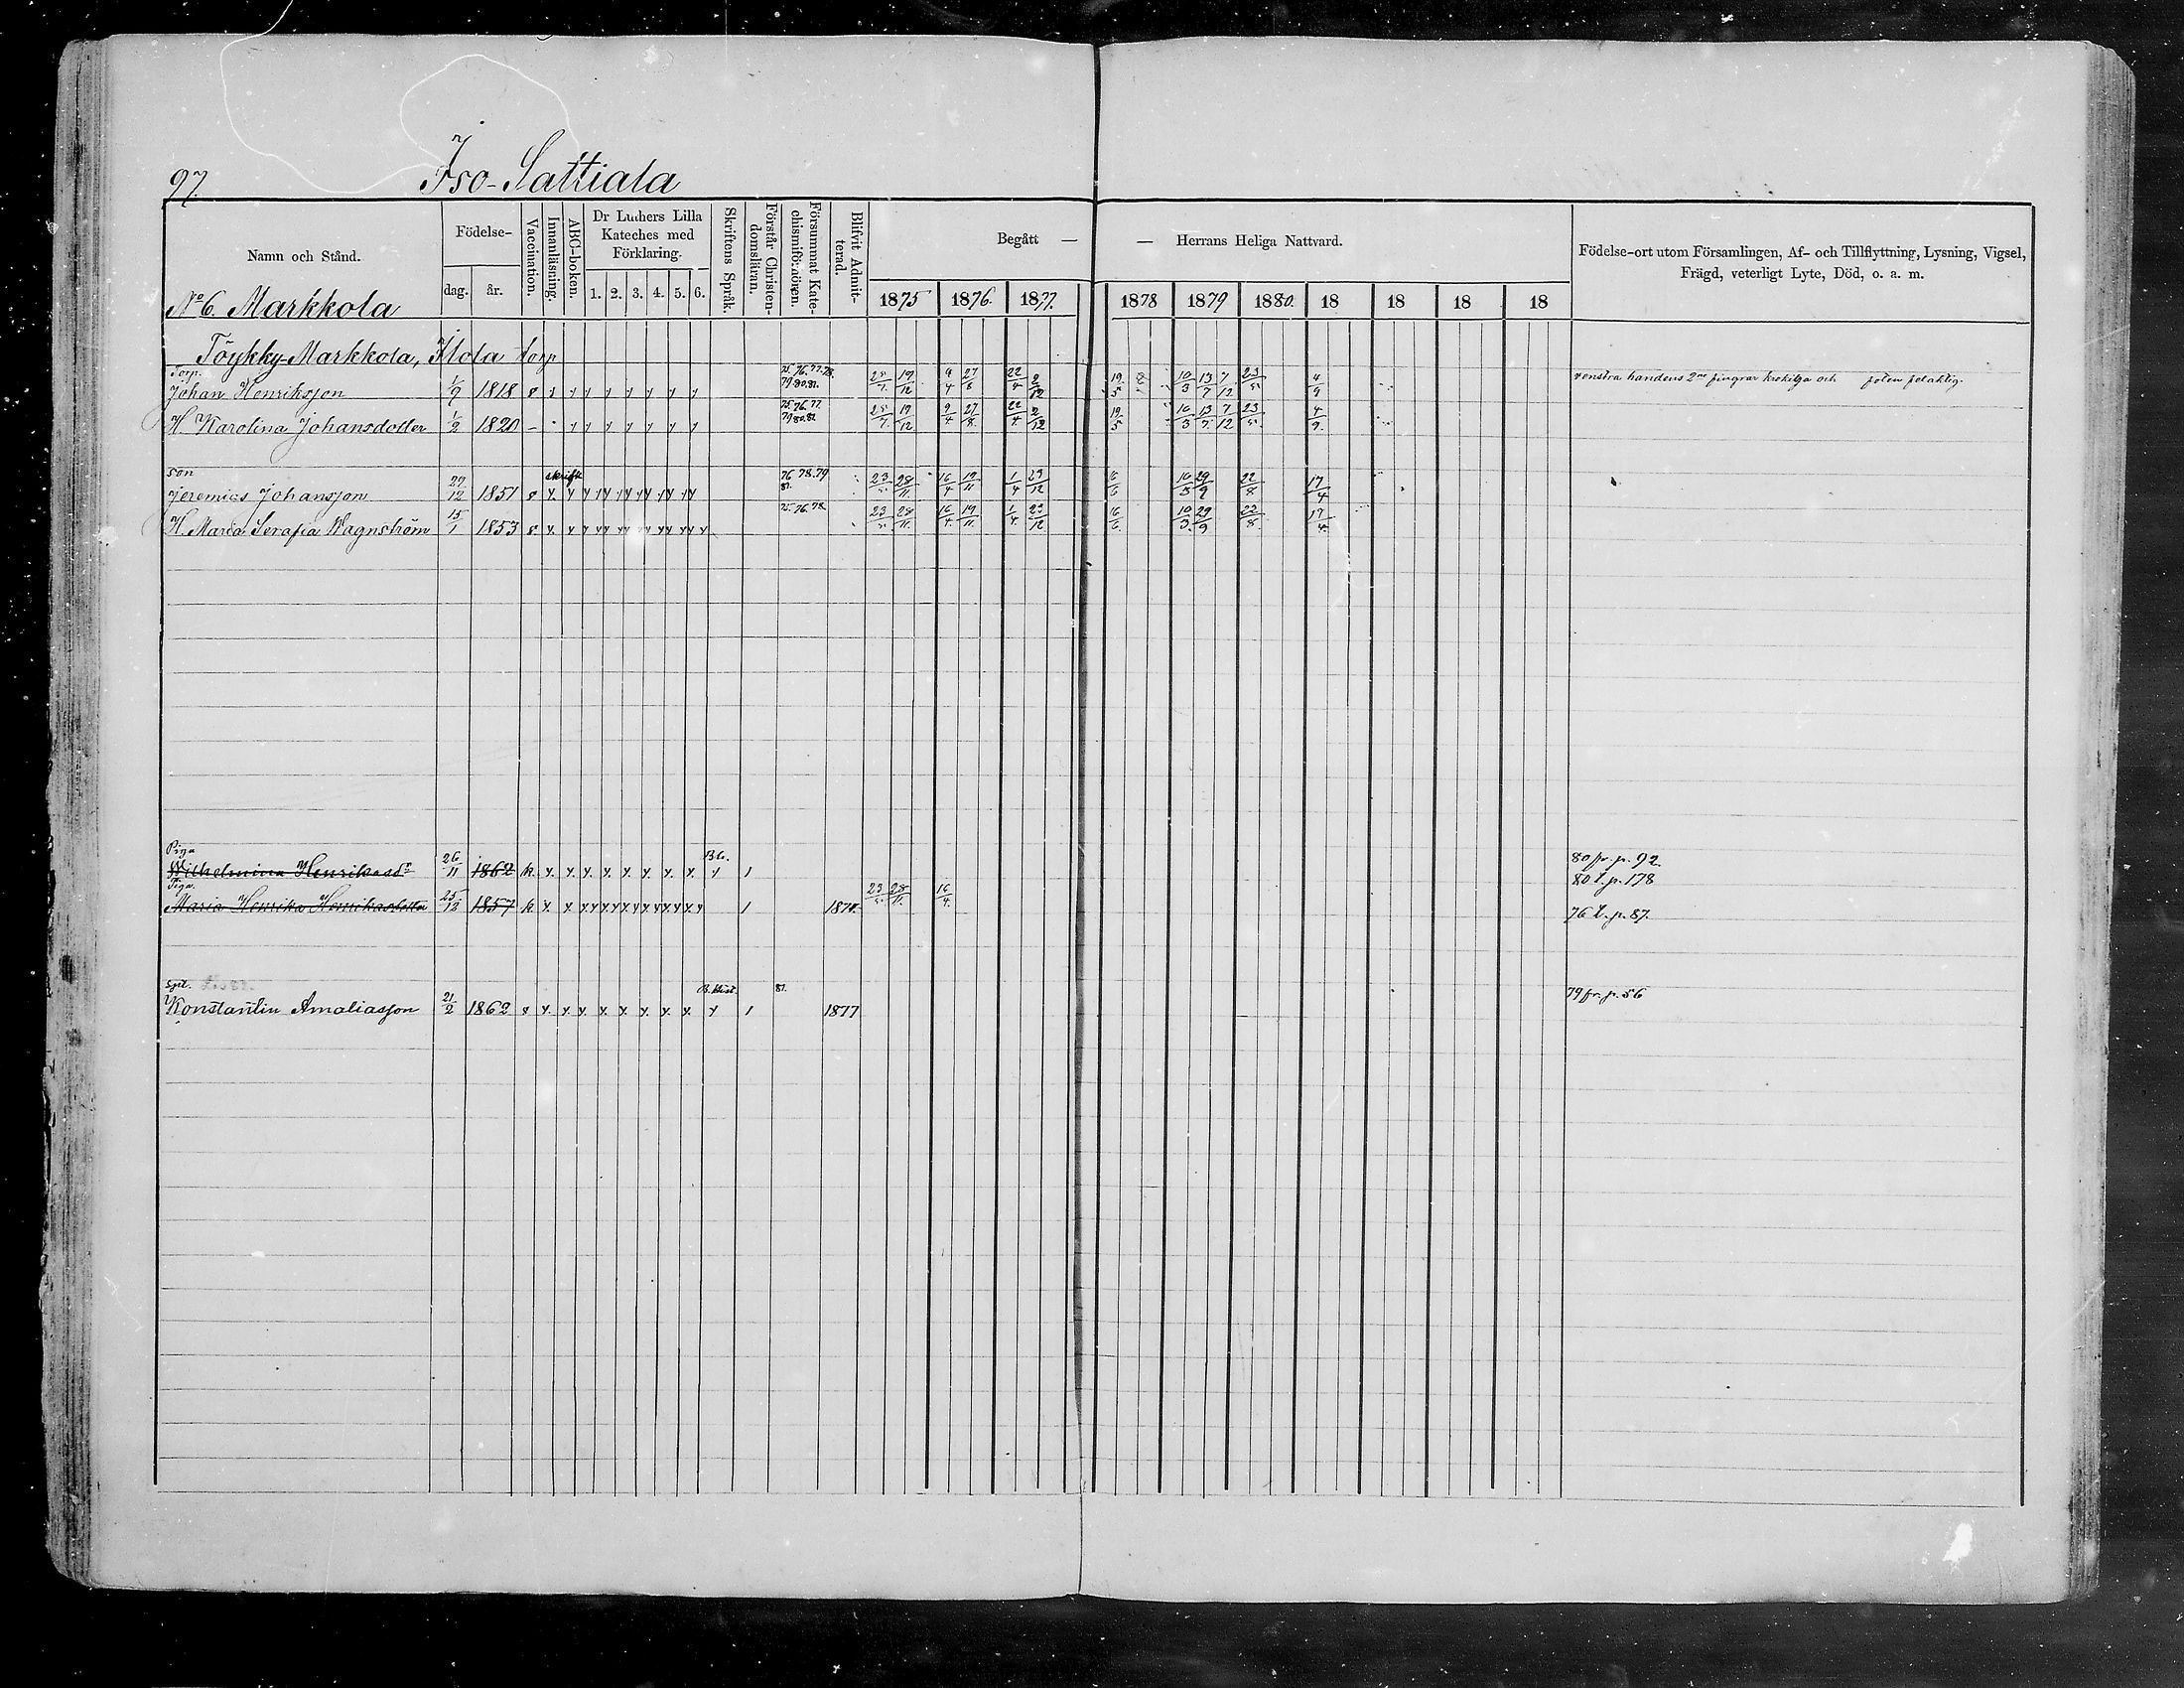 97.
Iso-Sattiala
Namn och Stånd.
Födelse-
dag.
år.
Vaccination.
Innanläsning.
ABC-boken.
Dr Luthers Lilla
Kateches med
Förklaring.
1. 2. 3. 4. 5. 6.
Skriftens Språk.
Förstår Christen-
domsläran.
Försummat Kate-
chismiförhören.
Blifvit Admit-
terad.
Begått —
— Herrans Heliga Nattvard.
1875 1876. 1877. 1878 1879 1880. 18 18 18 18
Födelse-ort utom Församlingen, Af- och Tillflyttning, Lysning, Vigsel,
Frägd, veterligt Lyte, Död, o. a. m.
No 6. Markkola
Töykky-Markkola, Ilola torp
Torp. 75. 76. 77. 78.
79. 80. 81.
Johan Henriksson 1/9 1818 19/12 9/4 27/8 22/4 2/12 19/5 10/3 13/7 7/12 23/5 4/9 venstra handens 2ne fingrar krokiga och foten felaktig.
75. 76. 77.
79 80 81
H. Karolina Johansdotter 1/2 1820 19/12 9/4 27/8. 22/4 2/12 19/5 10/3 13/7. 7/12 23/5. 4/9.
son skrift 76 78. 79
81.
Jeremias Johansson 27/12 1851 23/5. 28/11. 16/4 19/11 1/4 23/12 16/6 10/3 29/9 22/8 17/4
75. 76. 78.
H. Maria Serafia Wagnström 15/1 1853 23/5. 28/11. 16/4. 19/11. 1/4. 23/12 16/6. 10/3. 29/9 22/8. 17/4.
Piga B.h. 80 fr. p. 92.
Wilhelmina Henriksdr 26/11 1862 k. 80 t. p. 178
Piga.
Maria Henrika Henriksdotter 25/12 1857 k 1874. 23/5. 28/11. 16/4. 76 t. p. 87.
spil. B. hist. 81. 79 fr. p. 56
Konstantin Amaliasson 21/2 1862 1877